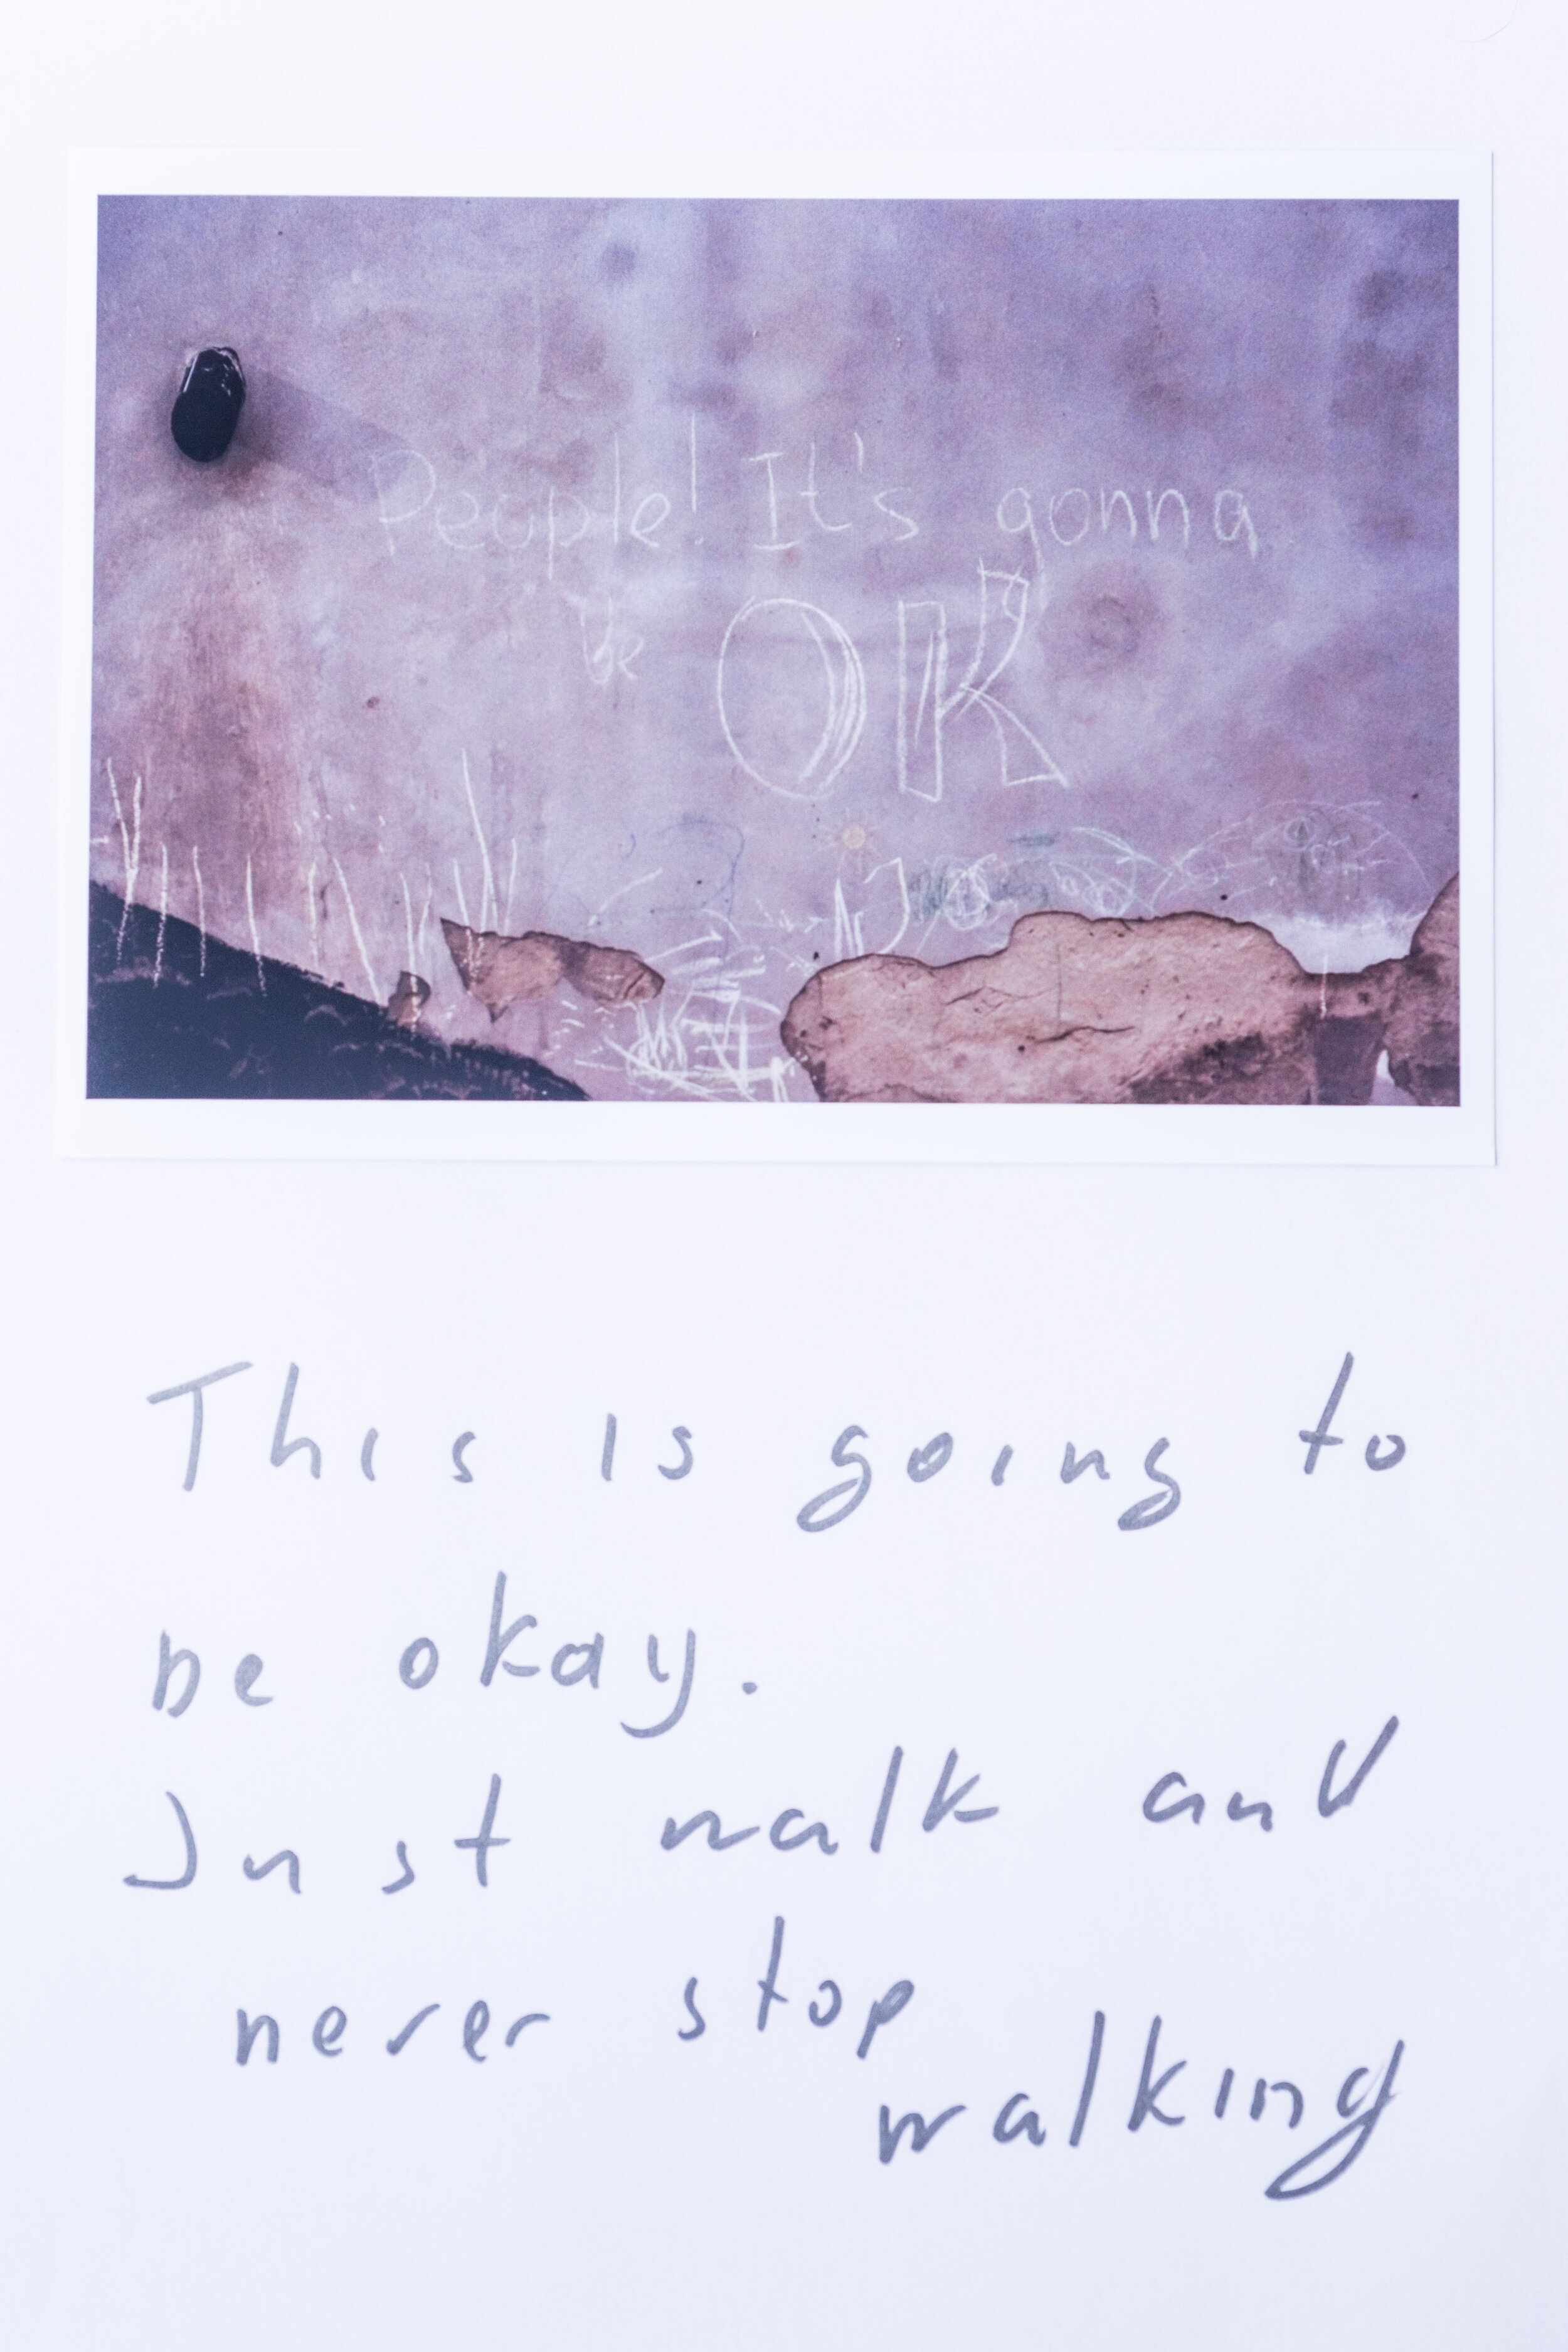 People! It's gonna
be OK
This is going to
be okay.
Just walk and
never stop
walking